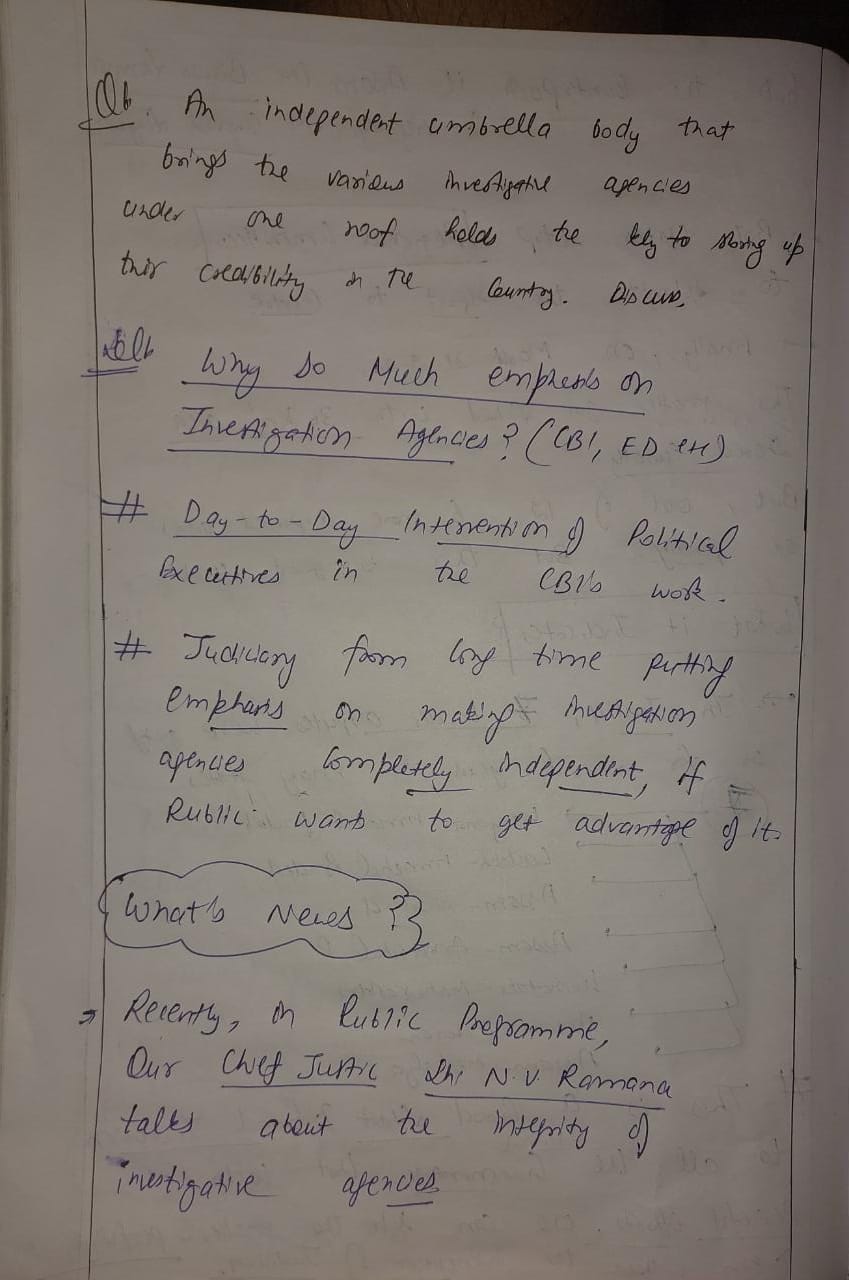 Q6. An independent umbrella body that
brings the various investigative agencies
under one roof holds the key to shoring up
their credibility in the Country. Discuss.
Sol6
Why so Much emphesis on
Investigation Agencies? (CBI, ED etc)
# Day-to-Day Intervention of Political
Executives in the CBI's work.
# Judiciary from long time putting
emphasis on making investigation
agencies Completely independent, if
Public wants to get advantage of it.
What's News ??
→ Recently, in Public Programme,
Our Chief Justic Shi N.V. Ramana
talks about the integrity of
investigative agencies